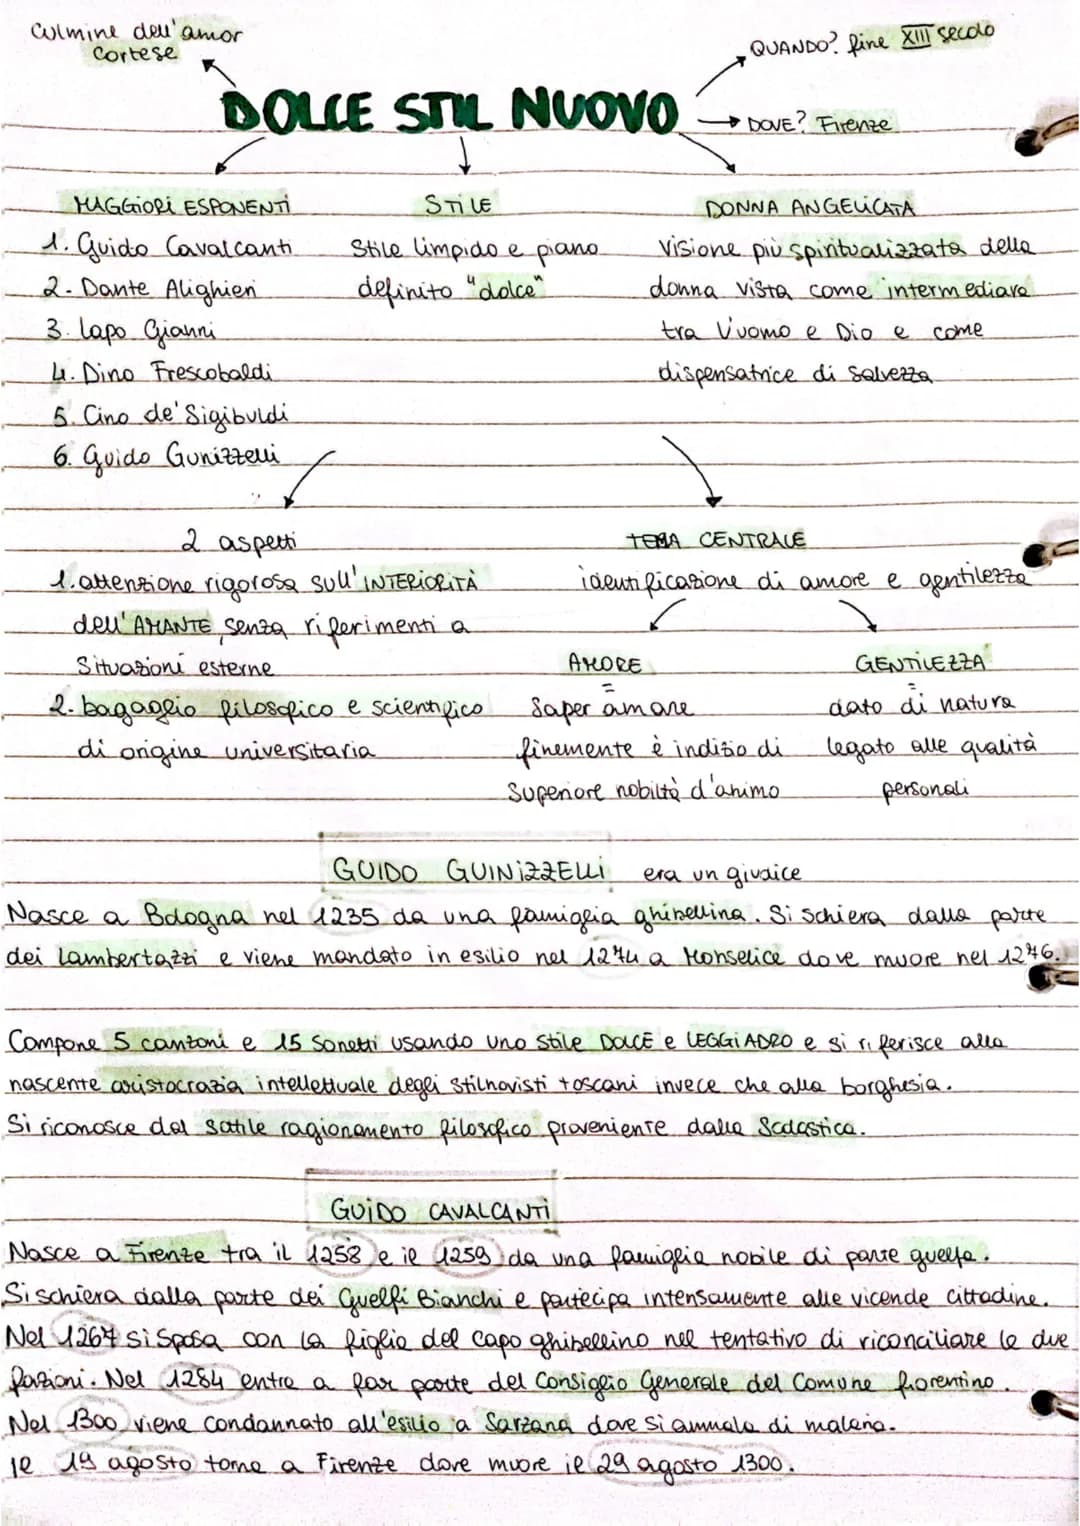 Culmine dell'amor
cortese
QUANDO? fine XIII secolo
DOLCE STIL NUOVO
DOVE? Firenze
MAGGIORI ESPONENTI
1. Guido Cavalcanti
2. Dante Alighieri
3. Lapo Gianni
4. Dino Frescobaldi
5. Cino de' Sigibuldi
6. Guido Gunizzelli
STILE
Stile limpido e piano
definito "dolce"
DONNA ANGELICATA
Visione più spiritualizzata della
donna vista come intermediara
tra l'uomo e Dio e come
dispensatrice di salvezza
2 aspetti
1. attenzione rigorosa sull'INTERIORITÀ
dell'AMANTE senza riferimenti a
situazioni esterne
2. bagaglio filosofico e scientifico
di origine universitaria
TEMA CENTRALE
identificazione di amore e gentilezza
AMORE
=
saper amare
finemente è indizio di
superiore nobiltà d'animo
GENTILEZZA
=
dato di natura
legato alle qualità
personali
GUIDO GUINIZZELLI era un giudice
Nasce a Bologna nel 1235 da una famiglia ghibellina. Si schiera dalla parte
dei Lambertazzi e viene mandato in esilio nel 1274 a Monselice dove muore nel 1276.
Compone 5 canzoni e 15 sonetti usando uno stile DOLCE e LEGGIADRO e si riferisce alla
nascente aristocrazia intellettuale degli stilnovisti toscani invece che alla borghesia.
Si riconosce dal sottile ragionamento filosofico proveniente dalla Scolastica.
GUIDO CAVALCANTI
Nasce a Firenze tra il 1258 e il 1259 da una famiglia nobile di parte guelfa.
Si schiera dalla parte dei Guelfi Bianchi e partecipa intensamente alle vicende cittadine.
Nel 1267 si sposa con la figlia del capo ghibellino nel tentativo di riconciliare le due
fazioni. Nel 1284 entra a far parte del Consiglio Generale del Comune fiorentino.
Nel 1300 viene condannato all'esilio a Sarzana dove si ammala di malaria.
Il 19 agosto torna a Firenze dove muore il 29 agosto 1300.